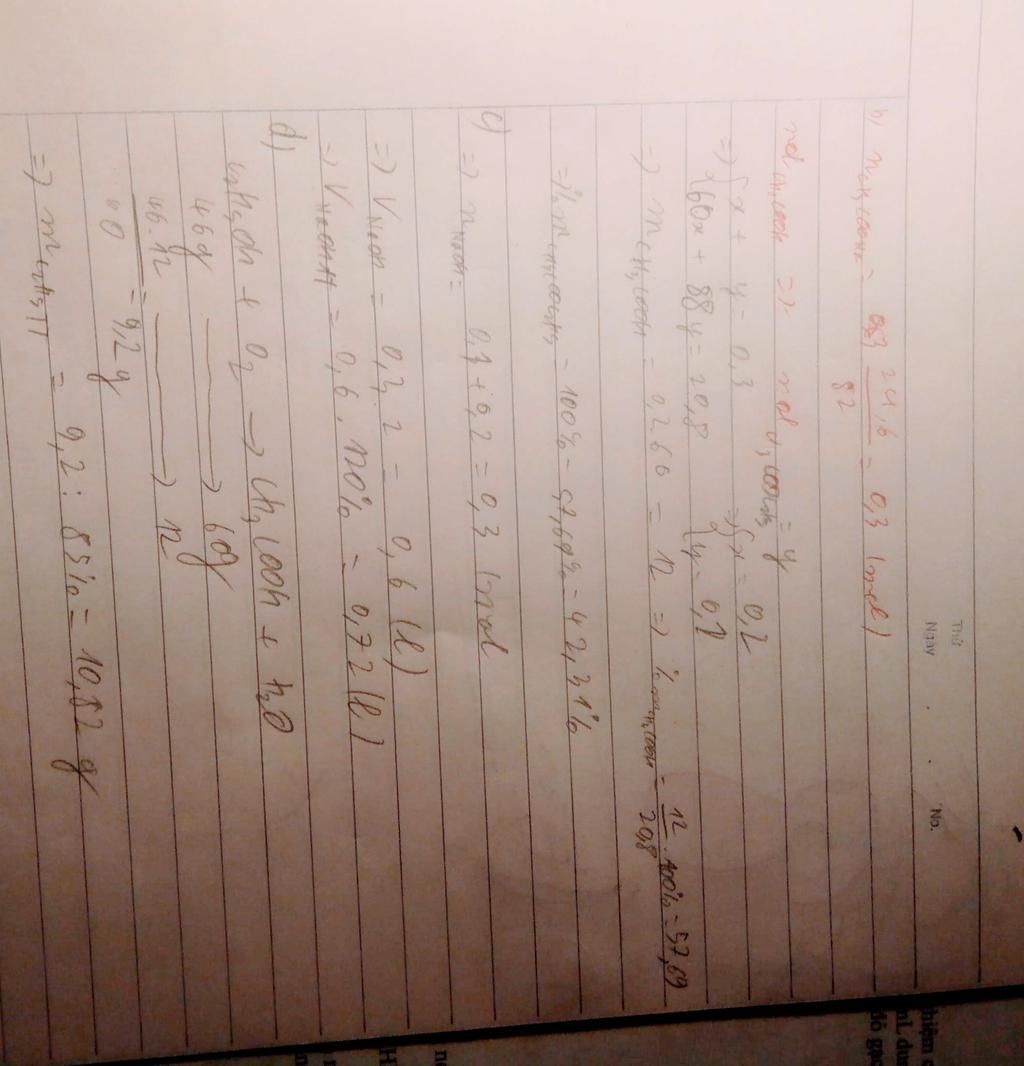 Thứ
Ngày . . No.
b) n CH3COONa = 24,6 / 82 = 0,3 (mol)
mol CH3COOH => x mol CH3COOC2H5 = y
=> { x + y = 0,3 => { x = 0,2
60x + 88y = 20,8 y = 0,1
=> m CH3COOH = 0,2.60 = 12 => % m CH3COOH = 12 / 20,8 . 100% = 57,69
=> % m CH3COOC2H5 = 100% - 57,69% = 42,31%
c) => n NaOH = 0,1 + 0,2 = 0,3 (mol
=> V NaOH = 0,3 . 2 = 0,6 (l)
= 0,6 . 120% = 0,72 (l)
d)
C2H5OH + O2 -> CH3COOH + H2O
46g -> 60g
46.12 / 60 = 9,2g -> 12
= 9,2 : 85% = 10,82 g